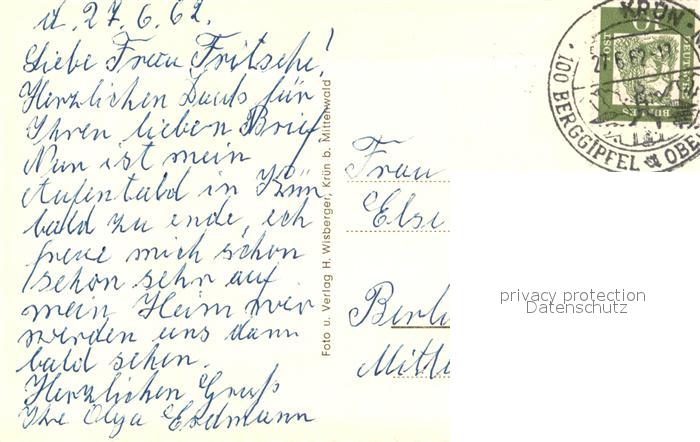 d. 27.6.62.
Liebe Frau Fritsche!
Herzlichen Dank für
Ihren lieben Brief.
Nun ist mein
Aufentald in Krün
bald zu ende, ich
freue mich schon
schon sehr auf
mein Heim wir
werden uns dann
bald sehen.
Herzlichen Gruß
Ihre Olga Erdmann
Foto u. Verlag H. Wisberger, Krün b. Mittenwald
Frau
Else
Berl
Mitt
KRÜN
27.6.62
100 BERGGIPFEL
OBE
privacy protection
Datenschutz